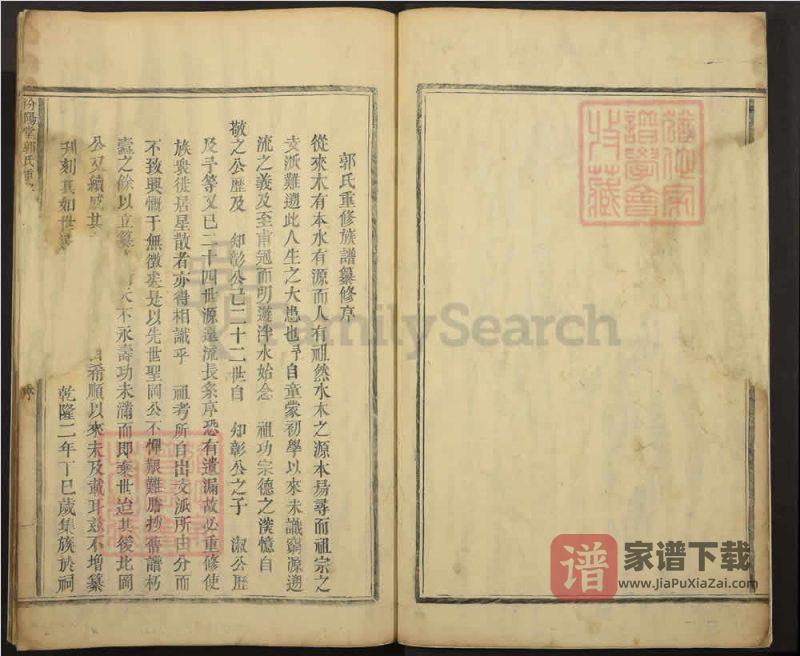 郭氏重修族譜纂修序
從來木有本水有源而人有祖然水木之源本易尋而祖宗之
支派難遡此人生之大患也予自童蒙初學以來未識窮源遡
流之義及至甫冠而明遊泮水始念 祖功宗德之漠憶自
敬之公歷及 知彰公已二十二世自 知彰公之子 淑公歷
及予等又已二十四世源遠流長条序恐有遺漏故必重修使
族衆徙居星散者亦得相識乎 祖考所自出支派所由分而
不致興慨于無徵矣是以先世聖岡公不憚艱難謄抄舊譜朽
蠹之餘以立纂 天不永壽功未滿而即棄世迨其後北岡
公又續 其 希順以來未及載耳兹不增纂
刊刻真如世 乾隆二年丁巳歲集族於祠
汾陽堂郭氏重
序
一
譜學會
特藏
FamilySearch
谱
家谱下载
www.JiaPuXiaZai.com